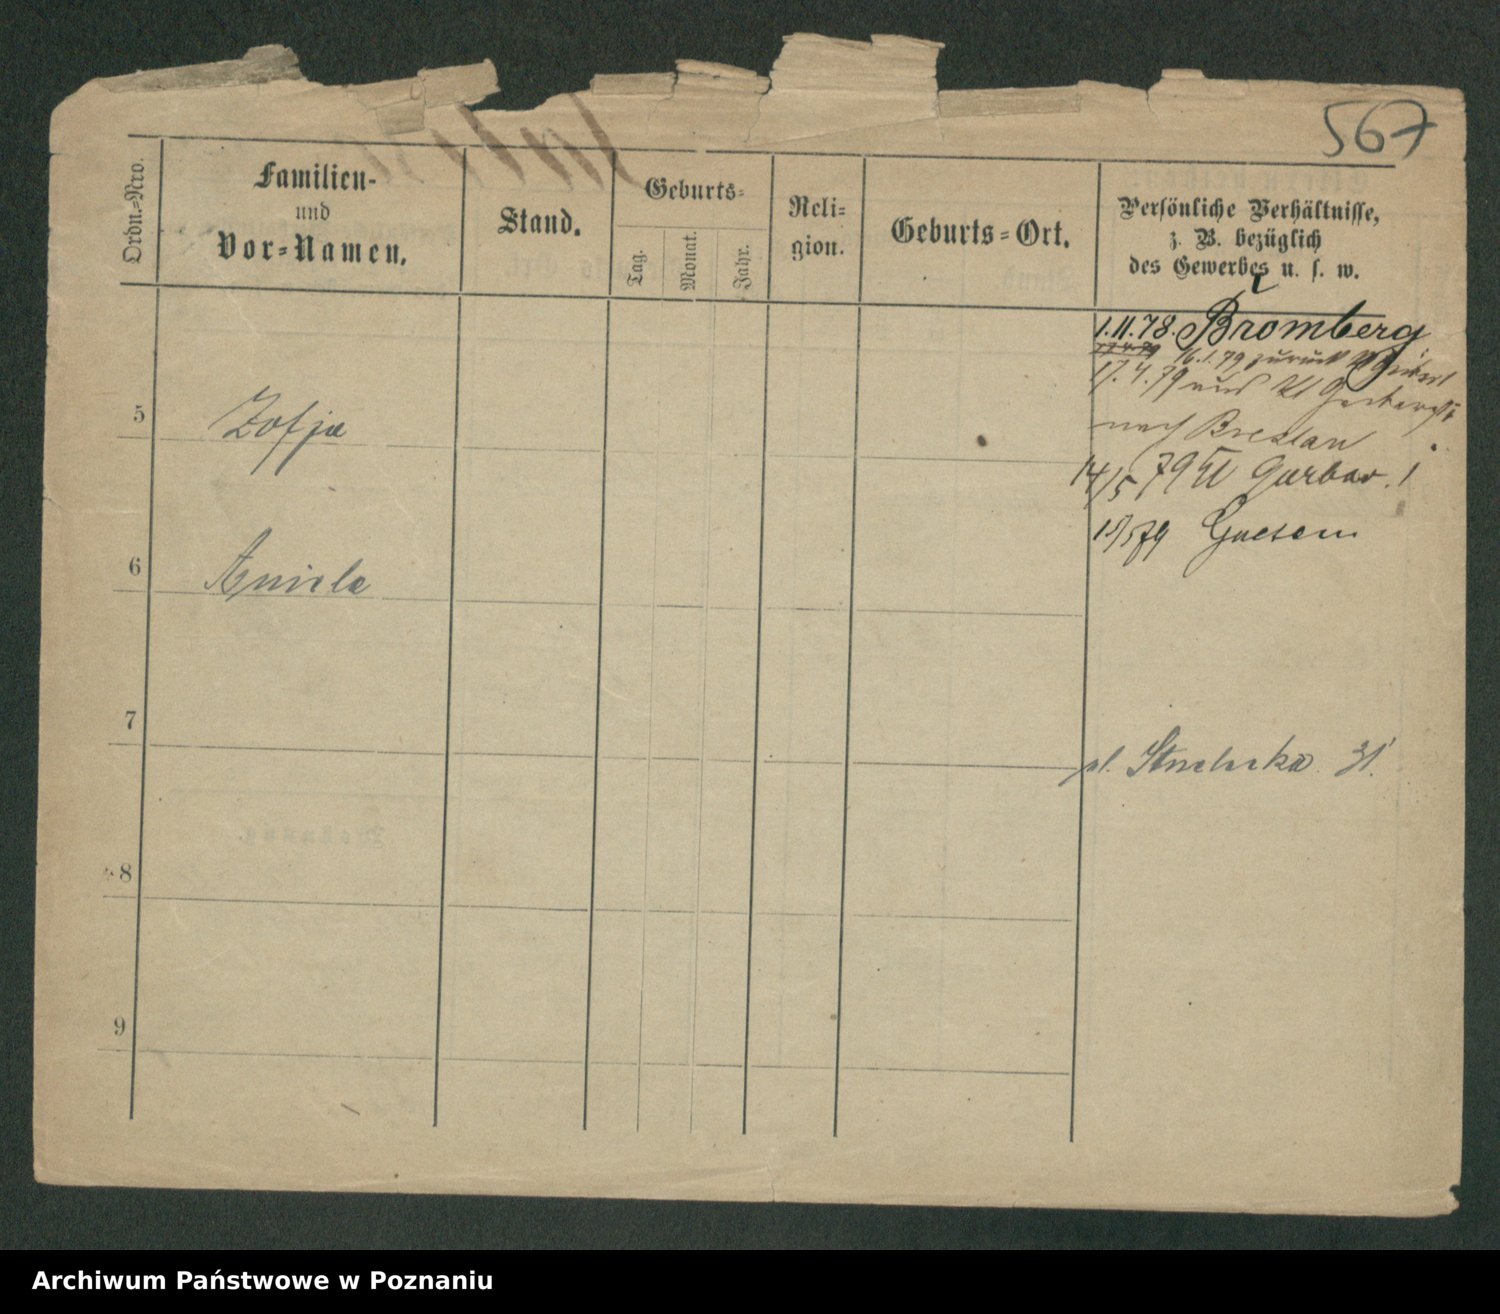 567
Ordn.-Nro.
Familien-
und
Vor-Namen.
Stand.
Geburts-
Tag.
Monat.
Jahr.
Reli-
gion.
Geburts-Ort.
Persönliche Verhältnisse,
z. B. bezüglich
des Gewerbes u. s. w.
1.11.78. Bromberg
17.4.79 16.1.79 zurück Kl
17.4.79 aus Kl Gerberstr
nach Breslau
14/5 79 Kl Garbar. 1
5 Zofja
Gnesen
6 Aniela
7
ul. Strzelecka 31.
8
9
Archiwum Państwowe w Poznaniu